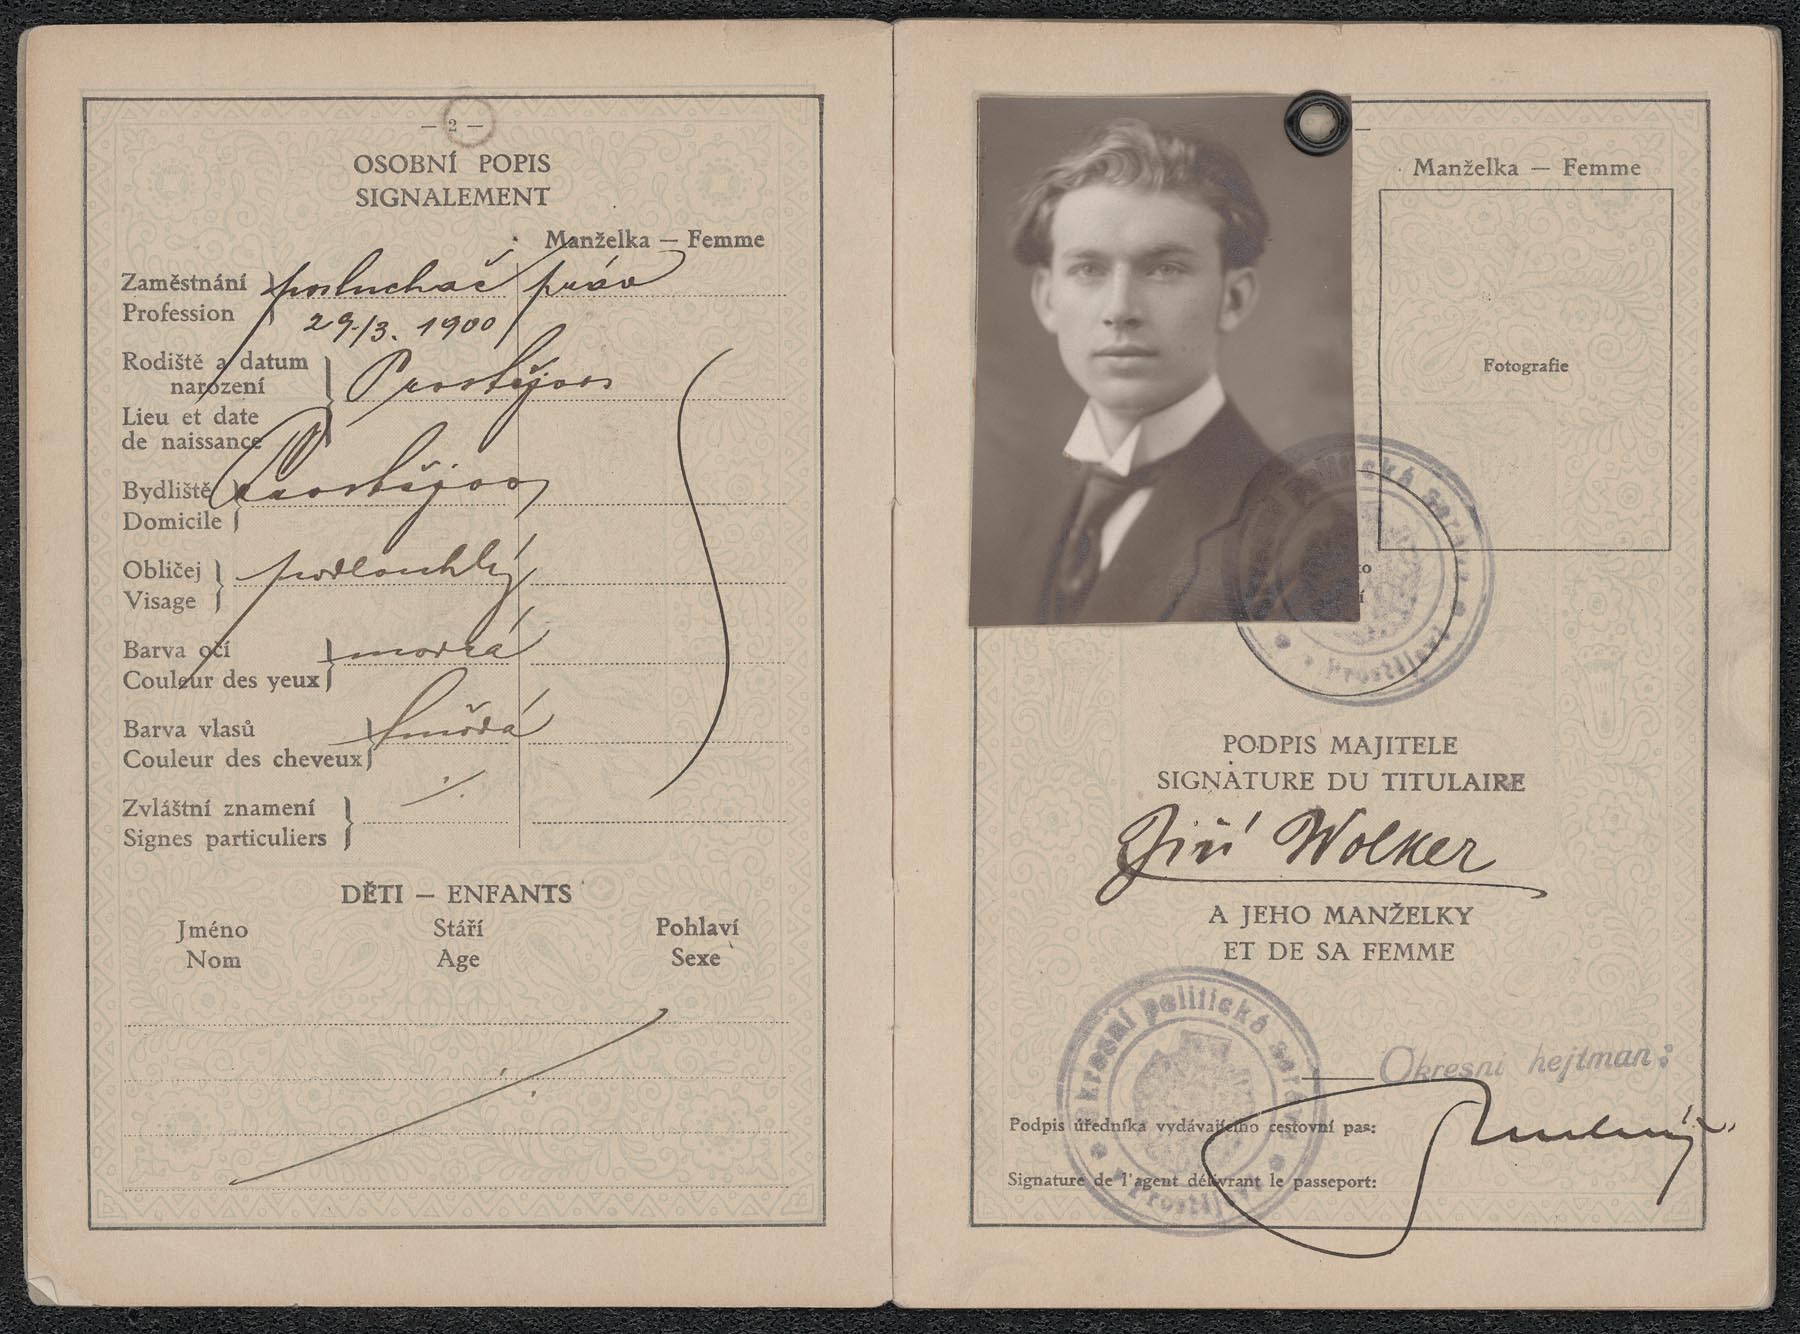 — 2 —
OSOBNÍ POPIS
SIGNALEMENT
Manželka — Femme
Zaměstnání
Profession
posluchač práv
29./3. 1900
Rodiště a datum
narození
Lieu et date
de naissance
Prostějov
Bydliště
Domicile
Prostějov
Obličej
Visage
podlouhlý
Barva očí
Couleur des yeux
modrá
Barva vlasů
Couleur des cheveux
smědá
Zvláštní znamení
Signes particuliers
DĚTI — ENFANTS
Jméno Stáří Pohlaví
Nom Age Sexe
Manželka — Femme
Fotografie
politická správa
Prostějov
PODPIS MAJITELE
SIGNATURE DU TITULAIRE
Jiří Wolker
A JEHO MANŽELKY
ET DE SA FEMME
Okresní politická správa
Prostějov
Okresní hejtman:
Podpis úředníka vydávajícího cestovní pas:
Signature de l'agent délivrant le passeport: